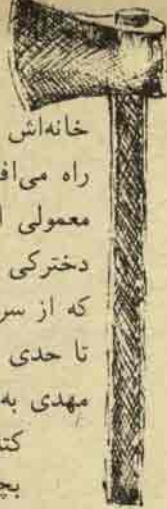 خانه‌اش
راه می‌اف
معمولی ا
دخترکی
که از سر
تا حدی
مهدی به
کتا
بچ